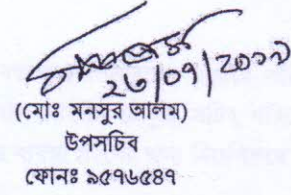 ২৬/০৭/২০১১
(মোঃ মনসুর আলম)
উপসচিব
ফোনঃ ৯৫৭৬৫৪৭